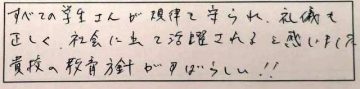 すべての学生さんが規律を守られ、礼儀も
正しく、社会に出て活躍されると感じました
貴校の教育方針がすばらしい!!